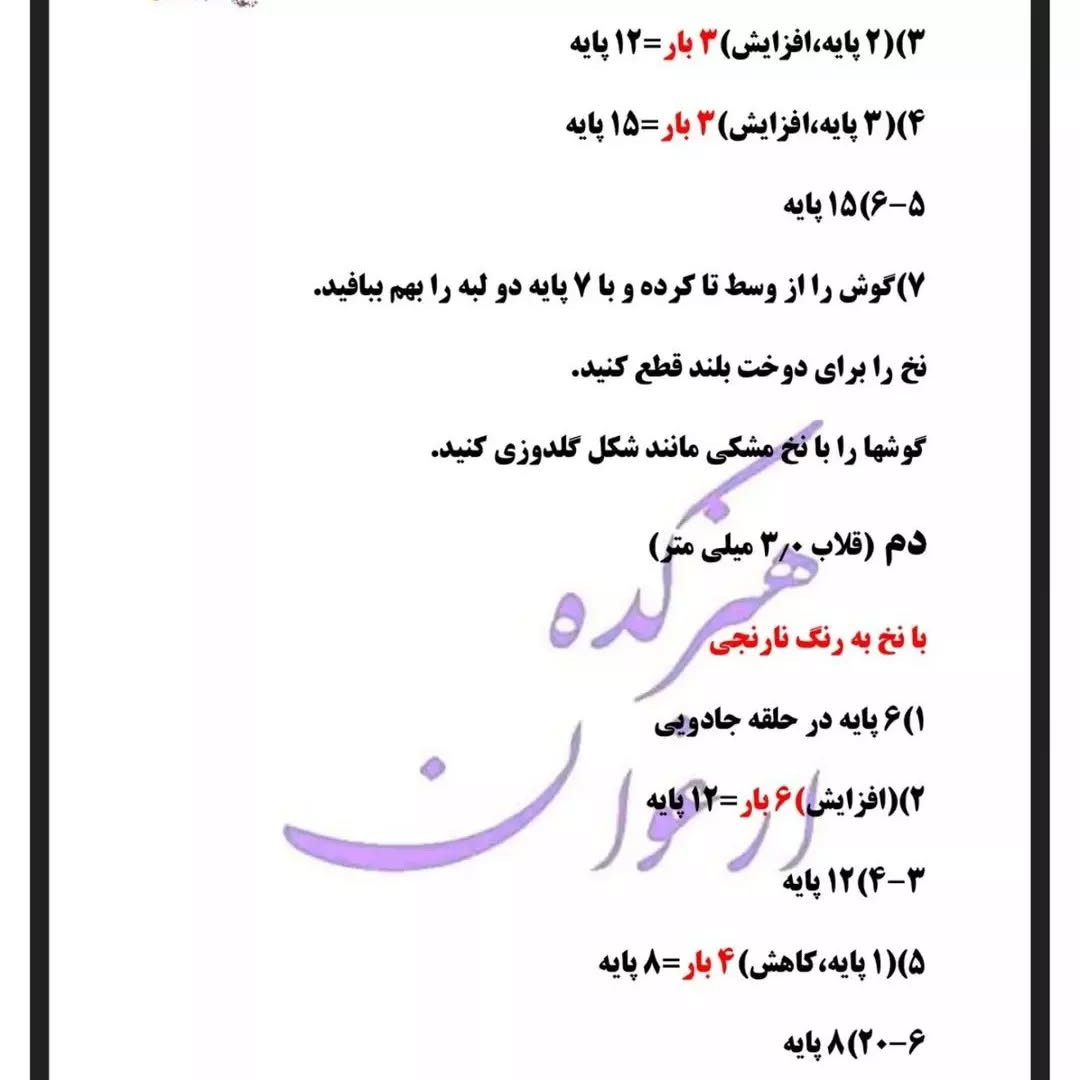 ۳)(۲ پایه،افزایش)۳ بار=۱۲ پایه
۴)(۳ پایه،افزایش)۳ بار=۱۵ پایه
۵-۶)۱۵ پایه
۷)گوش را از وسط تا کرده و با ۷ پایه دو لبه را بهم ببافید.
نخ را برای دوخت بلند قطع کنید.
گوشها را با نخ مشکی مانند شکل گلدوزی کنید.
دم (قلاب ۳٫۰ میلی متر)
هنرکده
با نخ به رنگ نارنجی
۱)۶ پایه در حلقه جادویی
ارغوان
۲)(افزایش)۶ بار=۱۲ پایه
۳-۴)۱۲ پایه
۵)(۱ پایه،کاهش)۴ بار=۸ پایه
۶-۲۰)۸ پایه